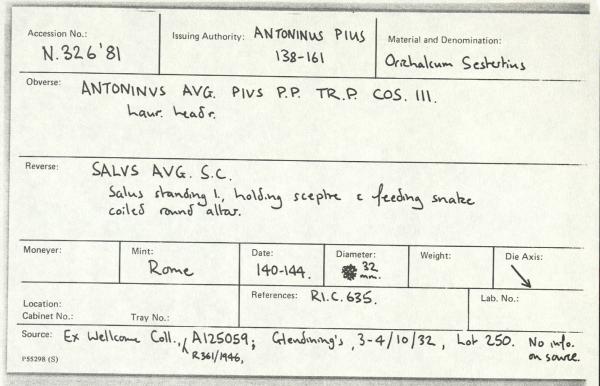 Accession No.: N.326'81
Issuing Authority: ANTONINUS PIUS
138-161
Material and Denomination:
Orichalcum Sestertius
Obverse: ANTONINVS AVG. PIVS P.P. TR.P. COS. III.
Laur. head r.
Reverse: SALVS AVG. S.C.
Salus standing l., holding sceptre & feeding snake
coiled round altar.
Moneyer:
Mint:
Rome
Date:
140-144.
Diameter:
32
mm.
Weight:
Die Axis:
↘
Location:
Cabinet No.: Tray No.:
References: R.I.C. 635.
Lab. No.:
Source: Ex Wellcome Coll., R361/1946, A125059; Glendining's, 3-4/10/32, Lot 250. No info.
on source.
P55298 (S)